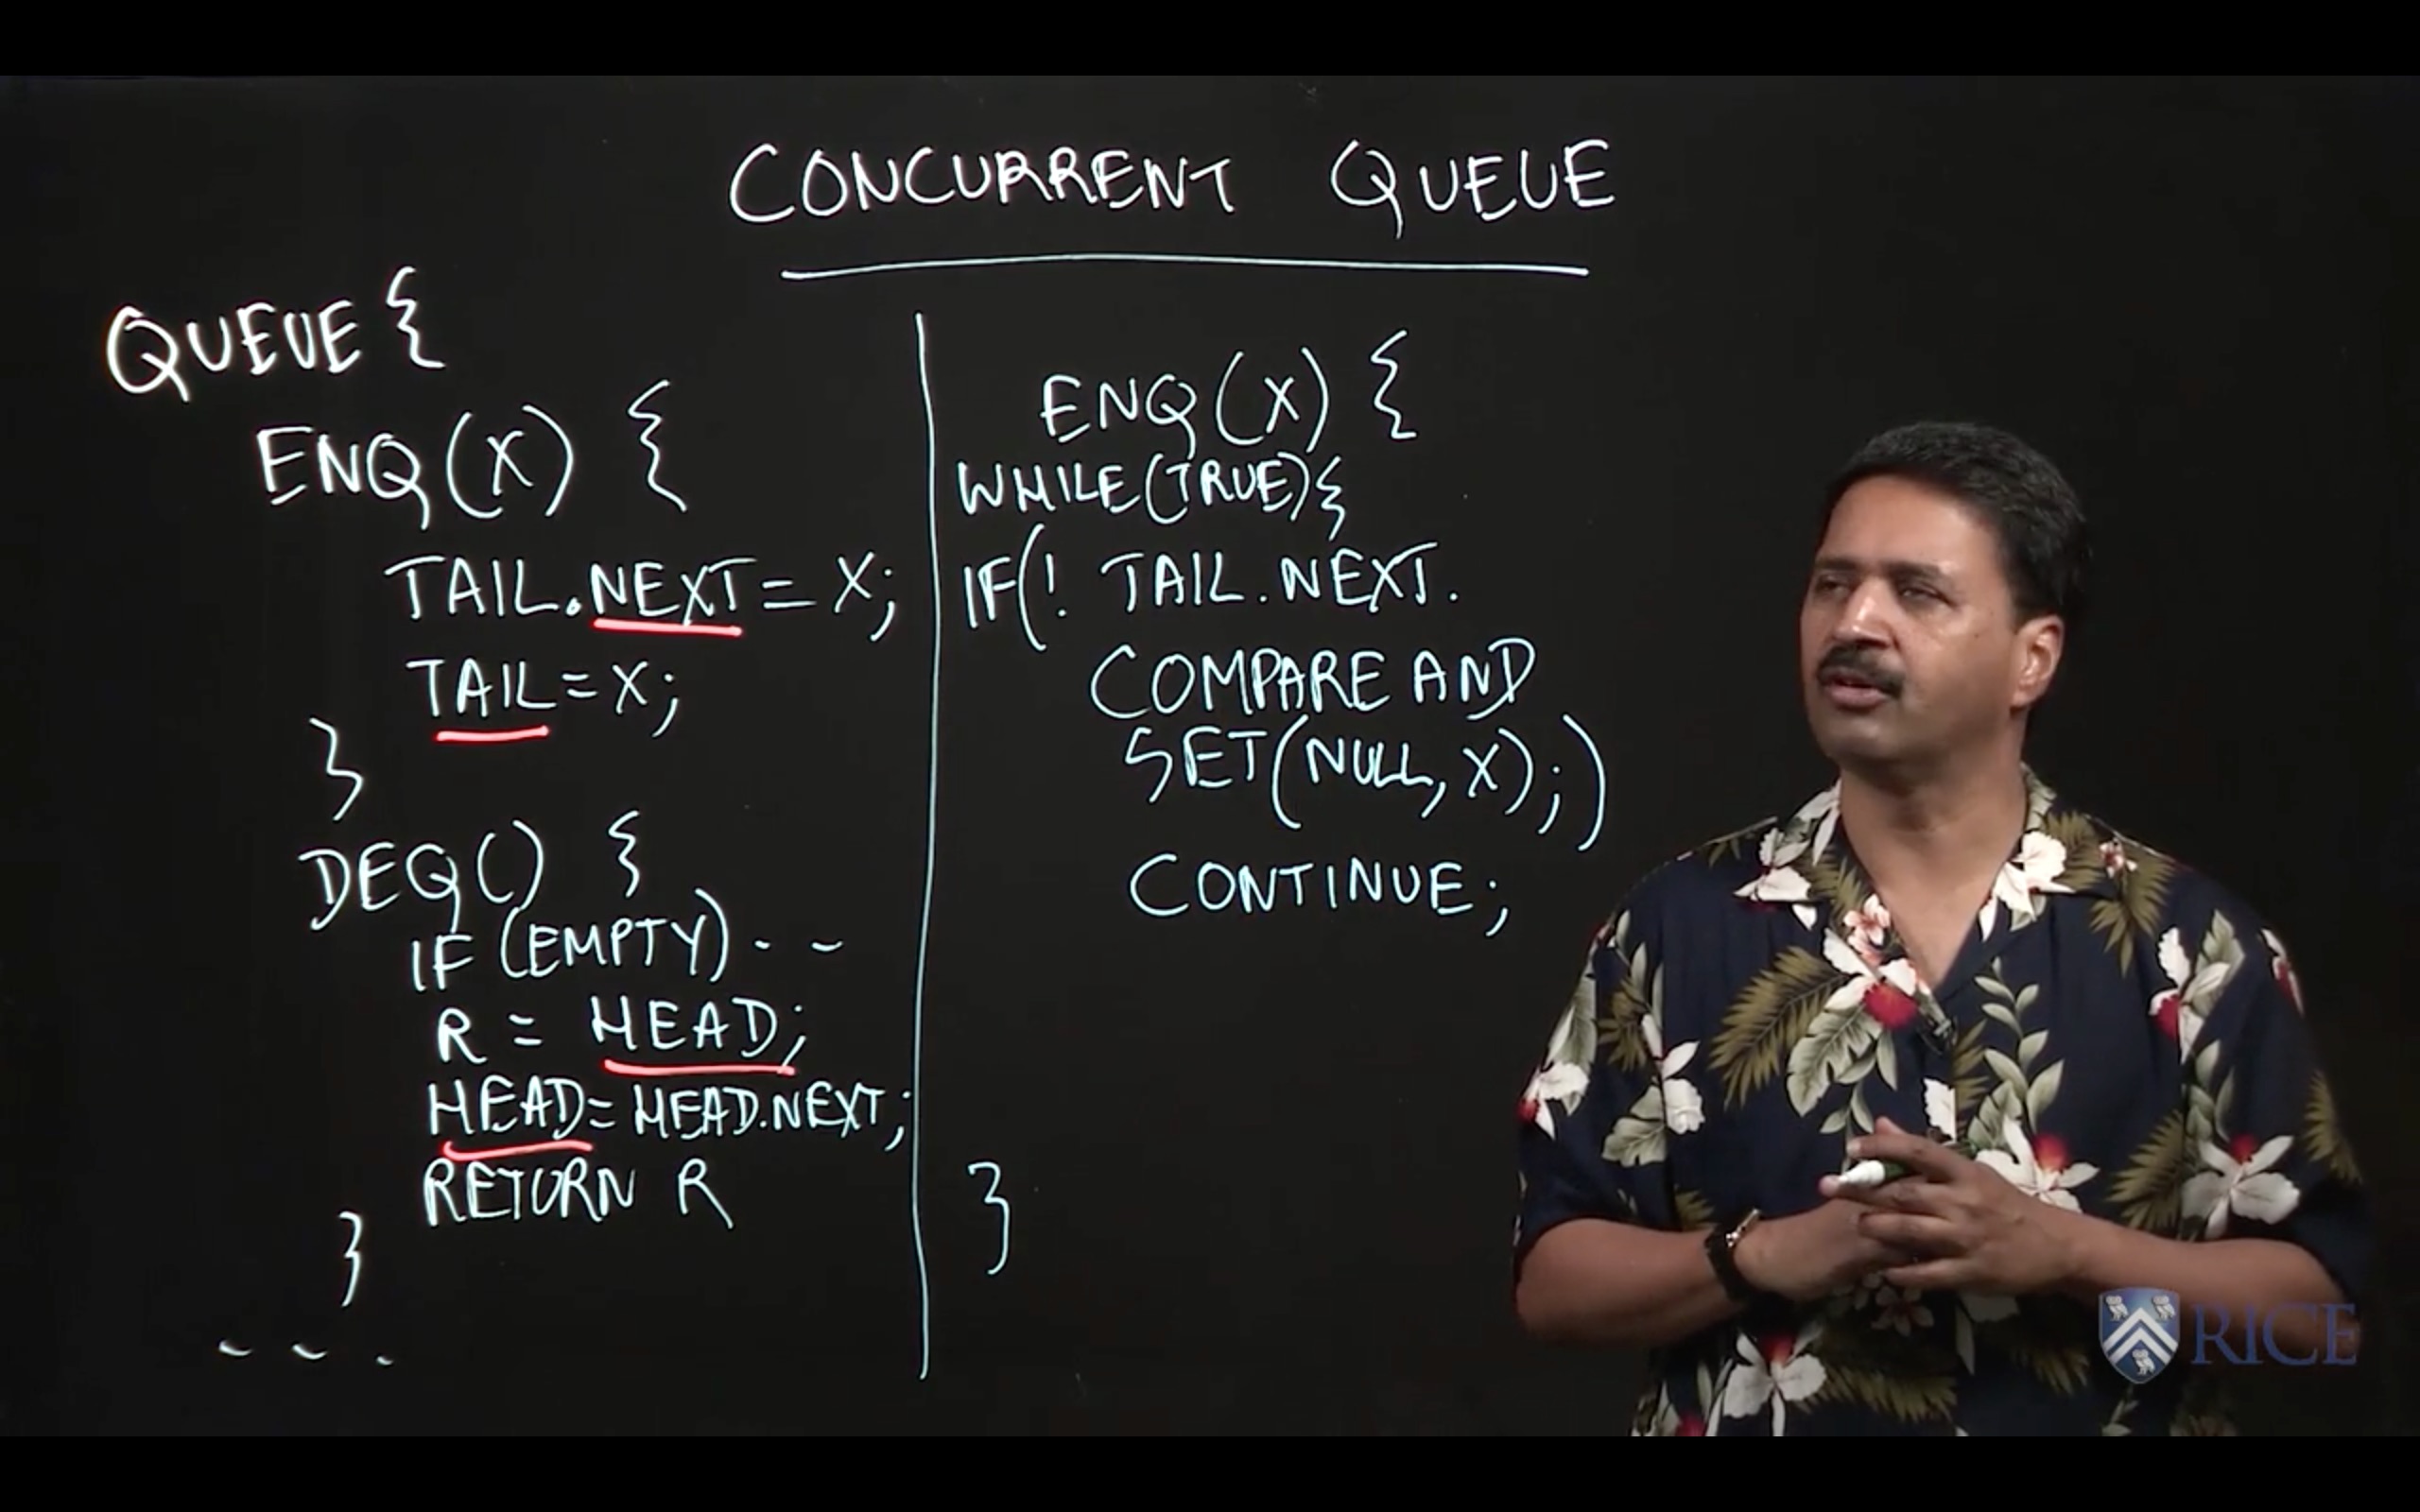 CONCURRENT QUEUE
QUEUE {
ENQ(X) {
TAIL.NEXT = X;
TAIL = X;
}
DEQ() {
IF (EMPTY) - -
R = HEAD;
HEAD = HEAD.NEXT;
RETURN R
}
- - -
ENQ(X) {
WHILE(TRUE){
IF(! TAIL.NEXT.
COMPARE AND
SET(NULL, X);)
CONTINUE;
}
RICE